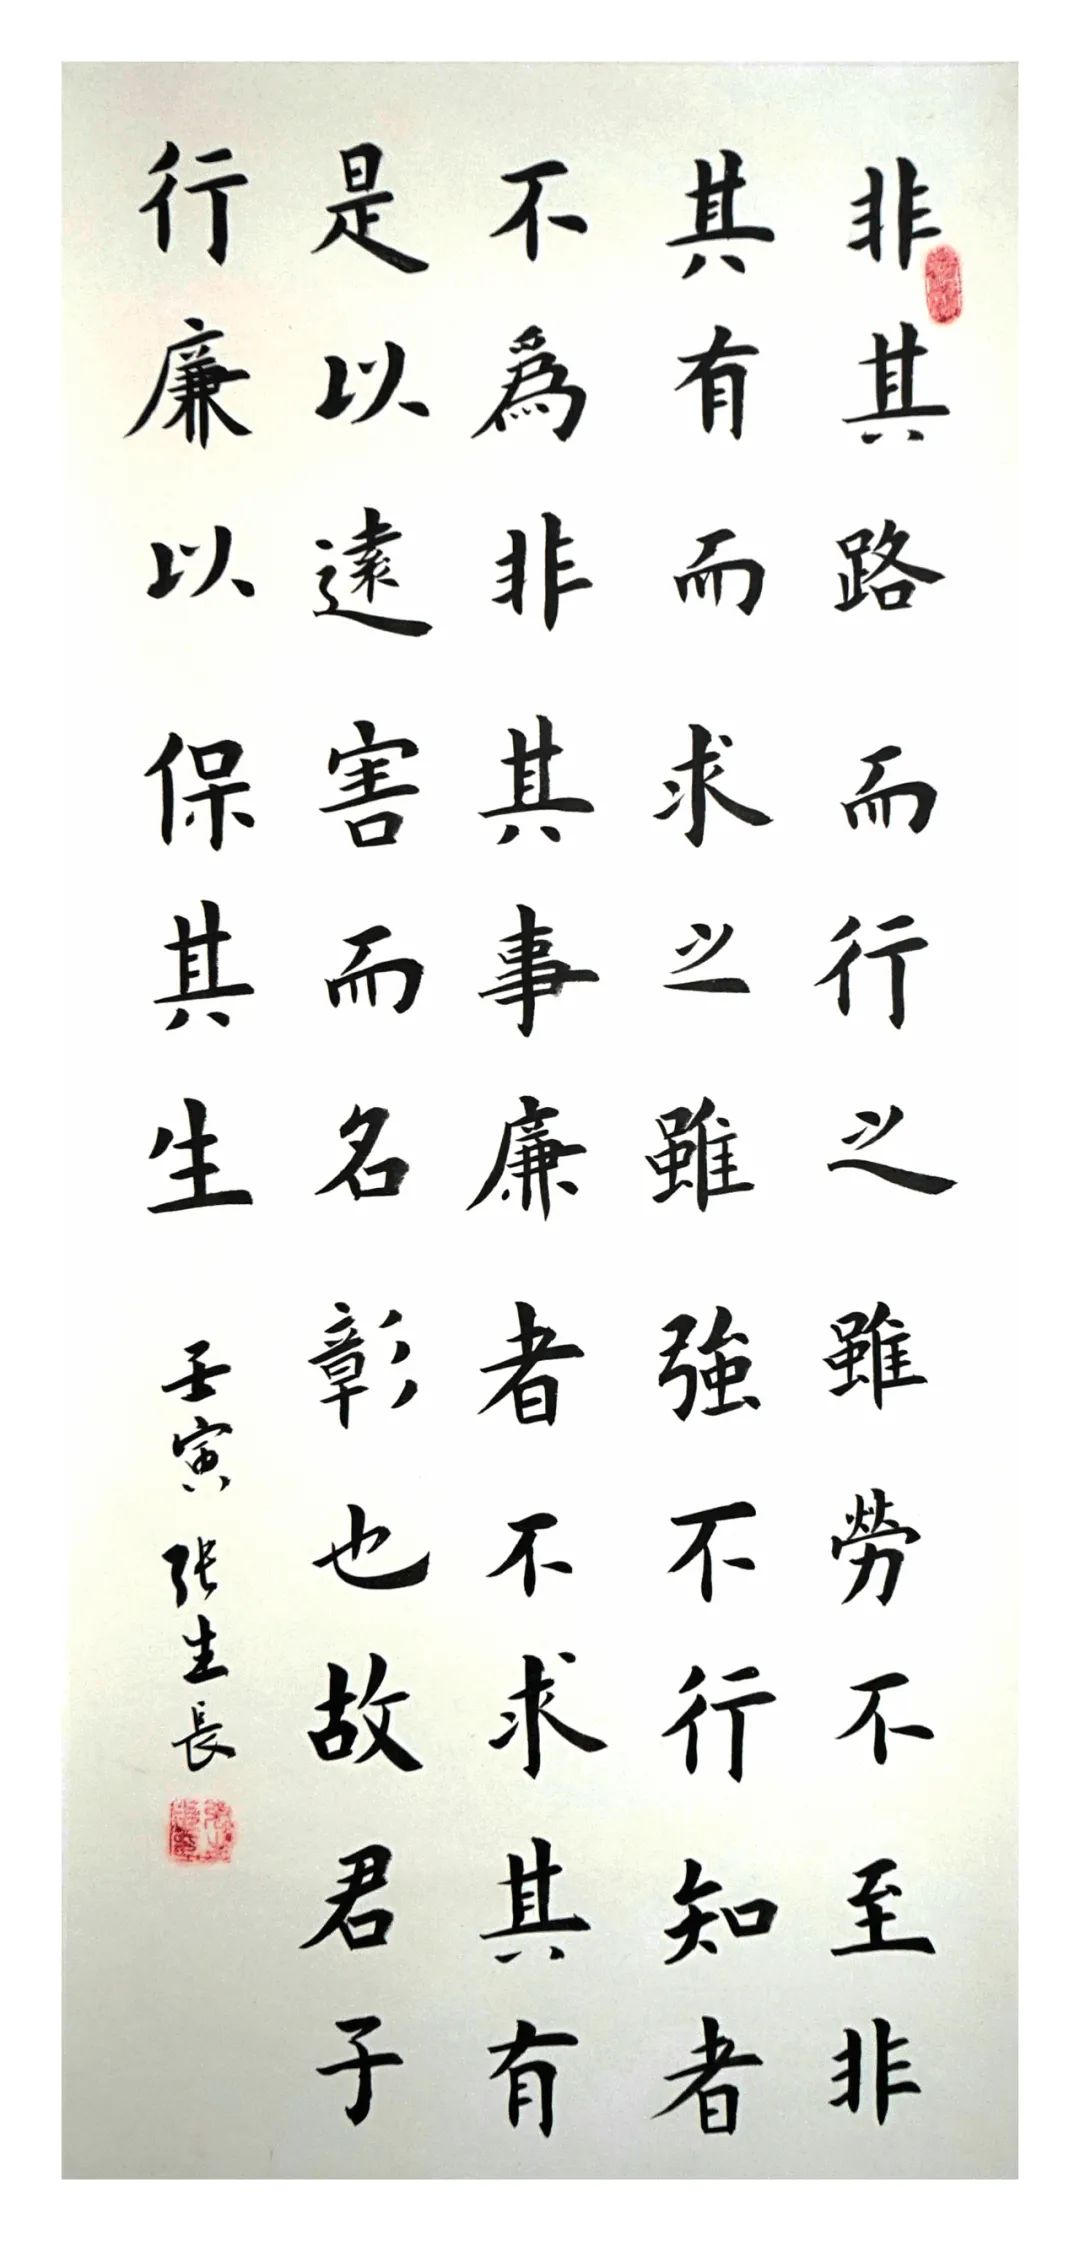 非其路而行之雖勞不至非
其有而求之雖強不行知者
不為非其事廉者不求其有
是以遠害而名彰也故君子
行廉以保其生
壬寅 张生長